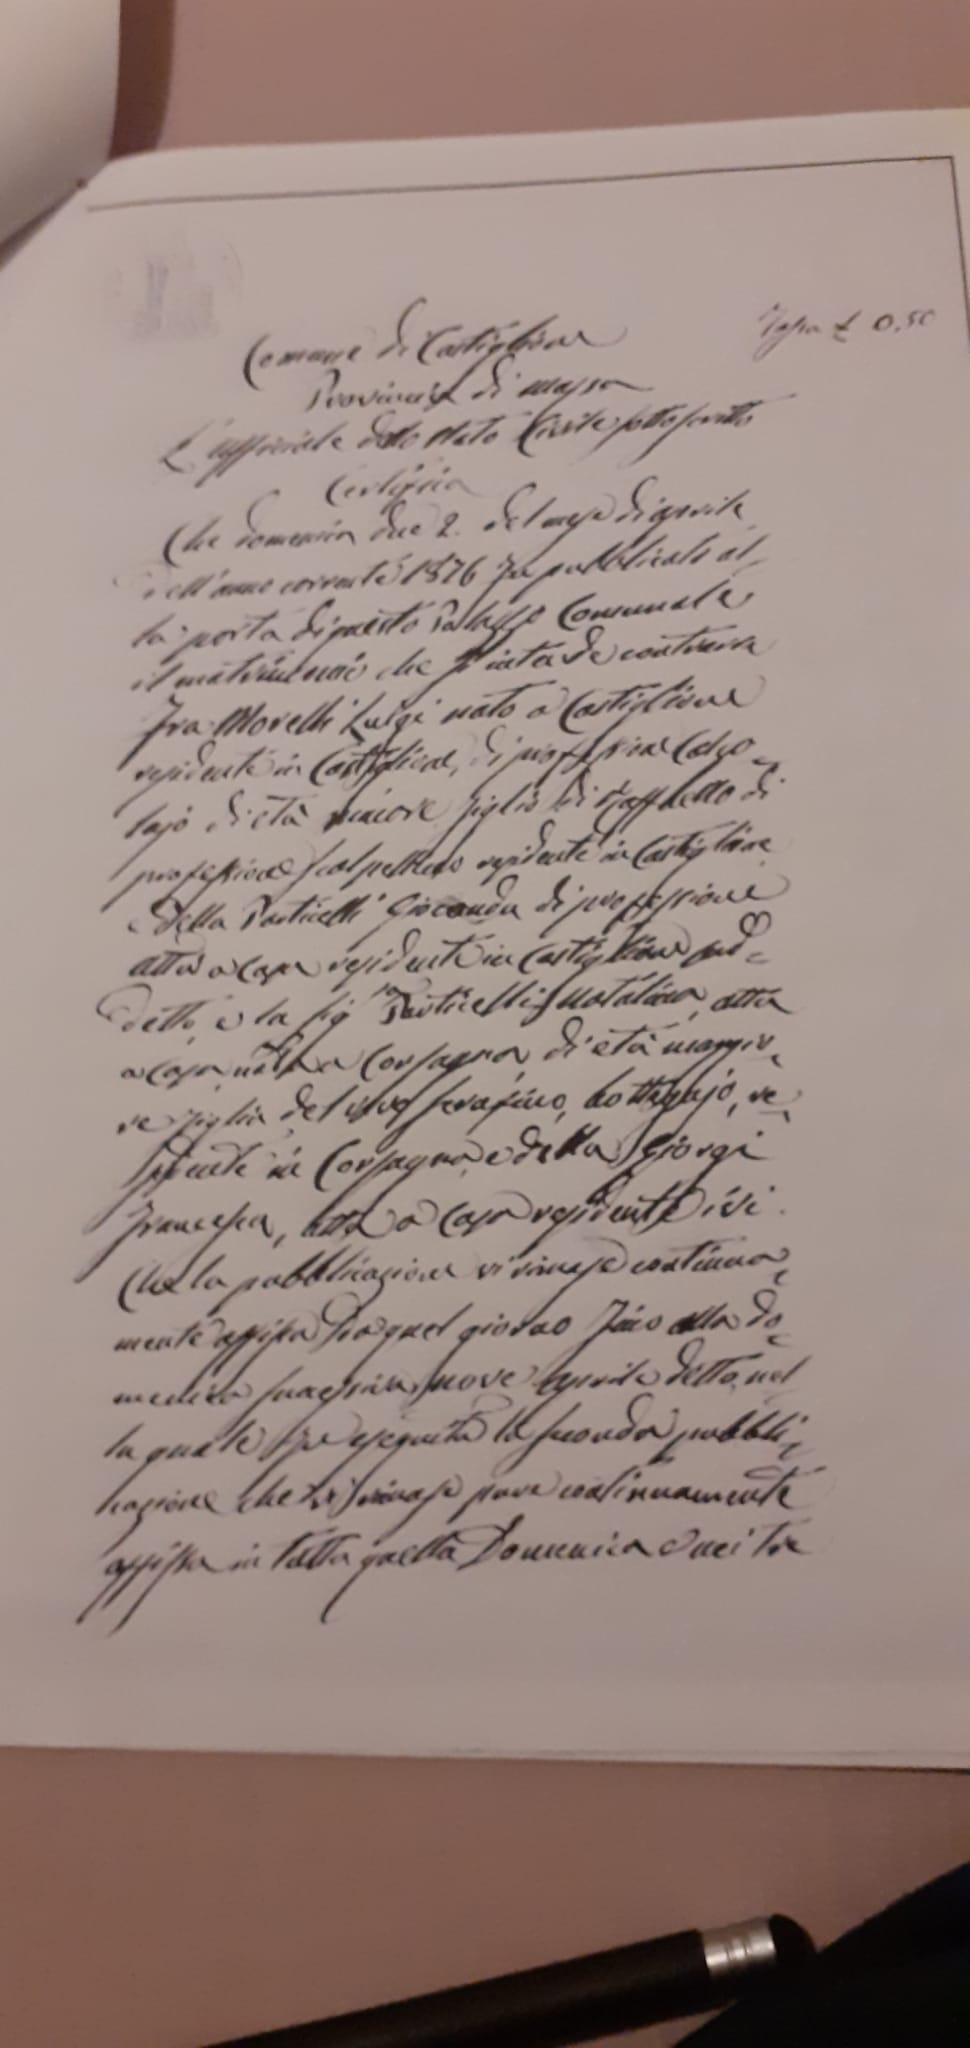 Tassa £ 0,50
Comune di Castiglione
Provincia di Massa
L'uffiziale dello Stato Civile sottoscritto
Certifica
Che domenica due 2. del mese di aprile
dell'anno corrente 1876 fu pubblicato al-
la porta di questo Palazzo Comunale
il matrimonio che si intende contrarre
fra Morelli Luigi nato a Castiglione
residente in Castiglione, di professione Calzo-
lajo di età figlio di Raffaello di
professione scalpellino residente in Castiglione
e della Particelli Gioconda di professione
atta a casa residente in Castiglione sud-
detto, e la sig.ra Particelli Natalina, atta
a casa nata a Corsagna, di età maggio-
re figlia del vivo Serafino, bottegajo, re-
sidente in Corsagna e della Giorgi
Francesca, atta a casa residente ivi.
Che la pubblicazione vi rimase continua-
mente affissa da quel giorno fino alla do-
menica nove aprile detto, nel
la quale fu eseguita la seconda pubbli-
cazione che vi rimase pure continuamente
affissa in tutta quella Domenica e nei tre